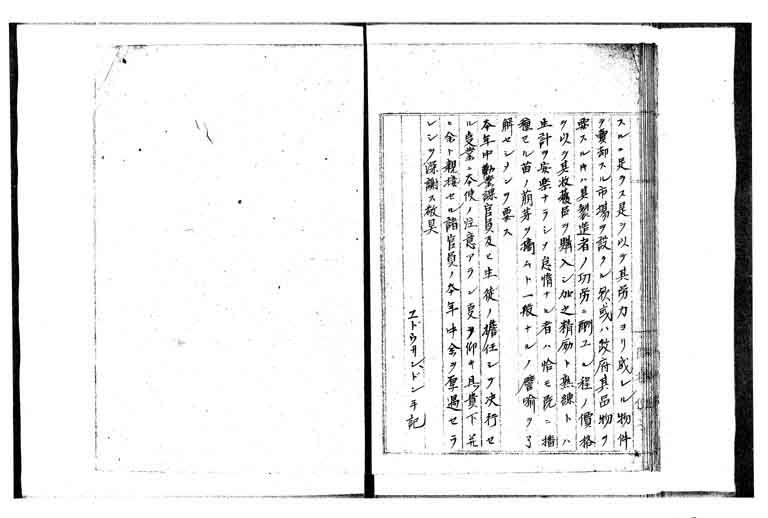 スルニ足ラス是ヲ以テ其労力ヨリ成レル物件
ヲ賣却スル市場ヲ設クル歟或ハ政府其品物ヲ
要スルキハ其製造者ノ功労ニ酬ユル程ノ價格
ヲ以テ其收獲品ヲ購入シ加之精励ト熟練トハ
生計ヲ安樂ナラシメ怠惰ナル者ハ恰モ既ニ播
種セル苗ノ萠芽ヲ摘ムト一般ナルノ譬喩ヲ了
解セシメンヿヲ要ス
本年中勸業課官員及ヒ生徒ノ擔任シテ决行セ
ル受業ニ本使ノ注意アラン夏ヲ仰キ且貴下并
ニ余ト親接セル諸官員ノ本年中余ヲ厚遇セラ
レシヲ深謝ス敬具
エドウ井ン、ドン手記